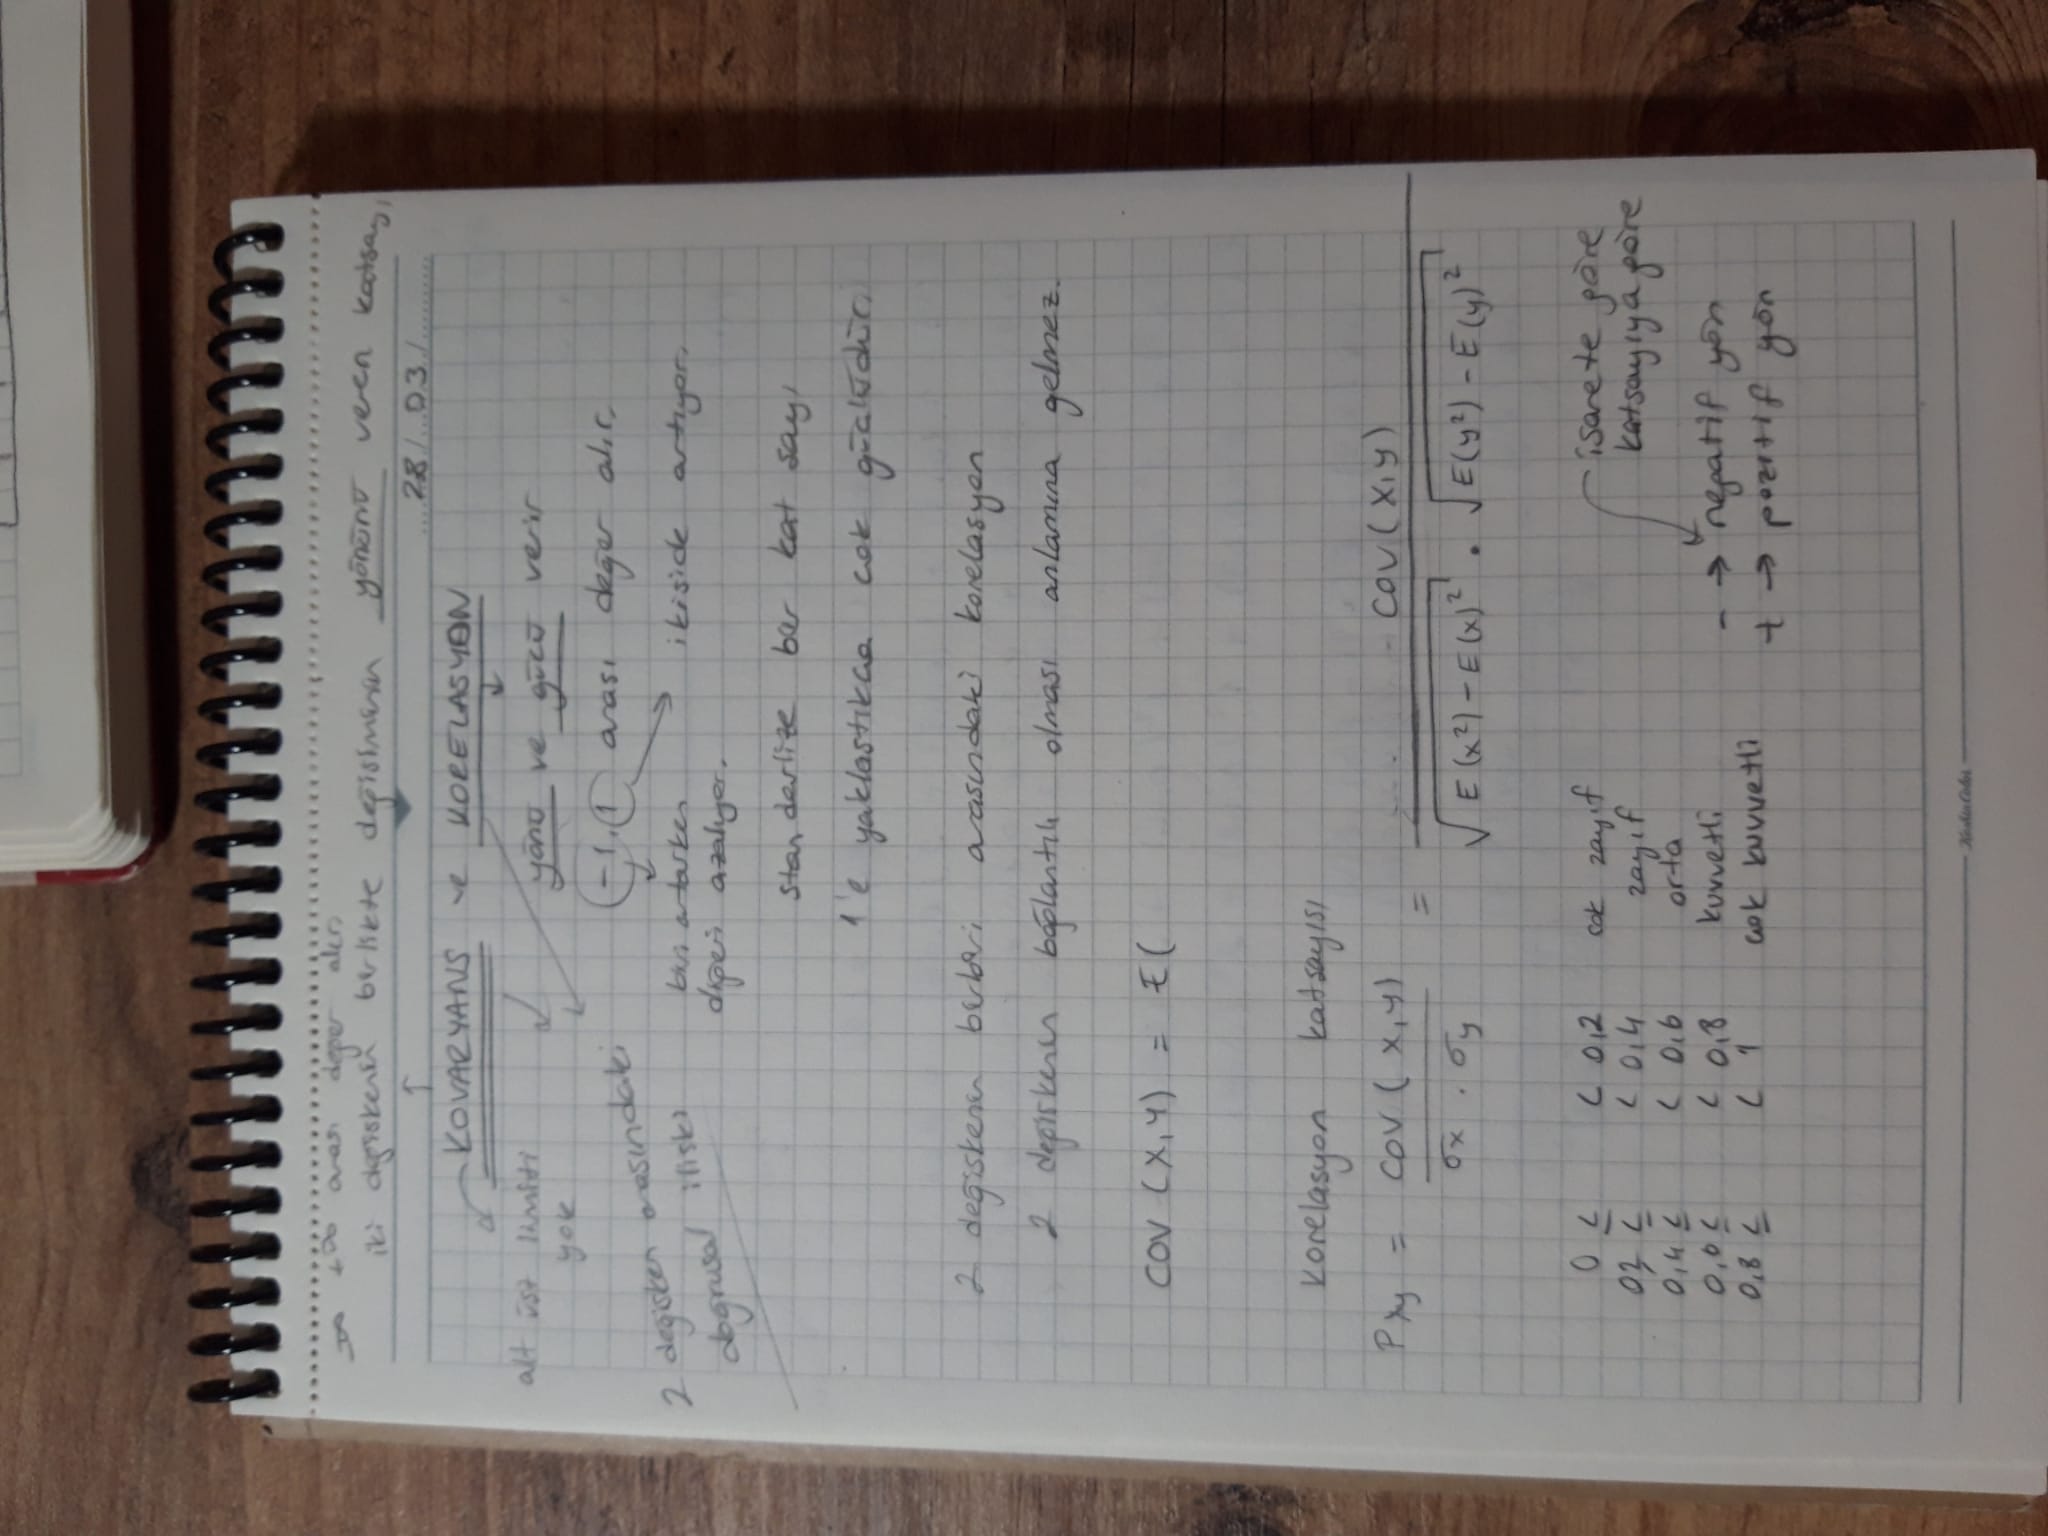 -∞ +∞ arası değer alır.
iki değişkenin birlikte değişiminin yönünü veren katsayı
28/03/
KOVARYANS ve KORELASYON
alt üst limiti yok
yönü ve gücü verir
-1,1 arası değer alır.
2 değişken arasındaki doğrusal ilişki
biri artarken diğeri azalıyor.
ikiside artıyor.
Standarlize bir kat sayı
1'e yaklastıkca cok güçlüdür.
2 değişkenin birbiri arasındaki korelasyon
2 değişkenin bağlantılı olması anlamına gelmez.
COV (X,Y) = E(
Korelasyon katsayısı
Pxy = COV (X,Y) / σx . σy = COV (X,Y) / √E(x²) - E(x)² . √E(y²) - E(y)²
0 ≤ < 0,2 cok zayıf
02 ≤ < 0,4 zayıf
0,4 ≤ < 0,6 orta
0,6 ≤ < 0,8 kuvvetli
0,8 ≤ < 1 cok kuvvetli
isarete göre
katsayıya göre
- → negatif yön
+ → pozitif yön